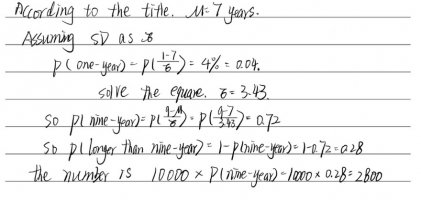 According to the title. M=7 years.
Assuming SD as 6
P(one-year) = P(1-7/6) = 4% = 0.04.
solve the equare. 6 = 3.43.
So P(nine-year) = P(9-M/6) = P(9-7/3.43) = 0.72
So P(longer than nine-year) = 1-P(nine-year) = 1-0.72 = 0.28
the number is 10000 × P(nine-year) = 1000 × 0.28 = 2800